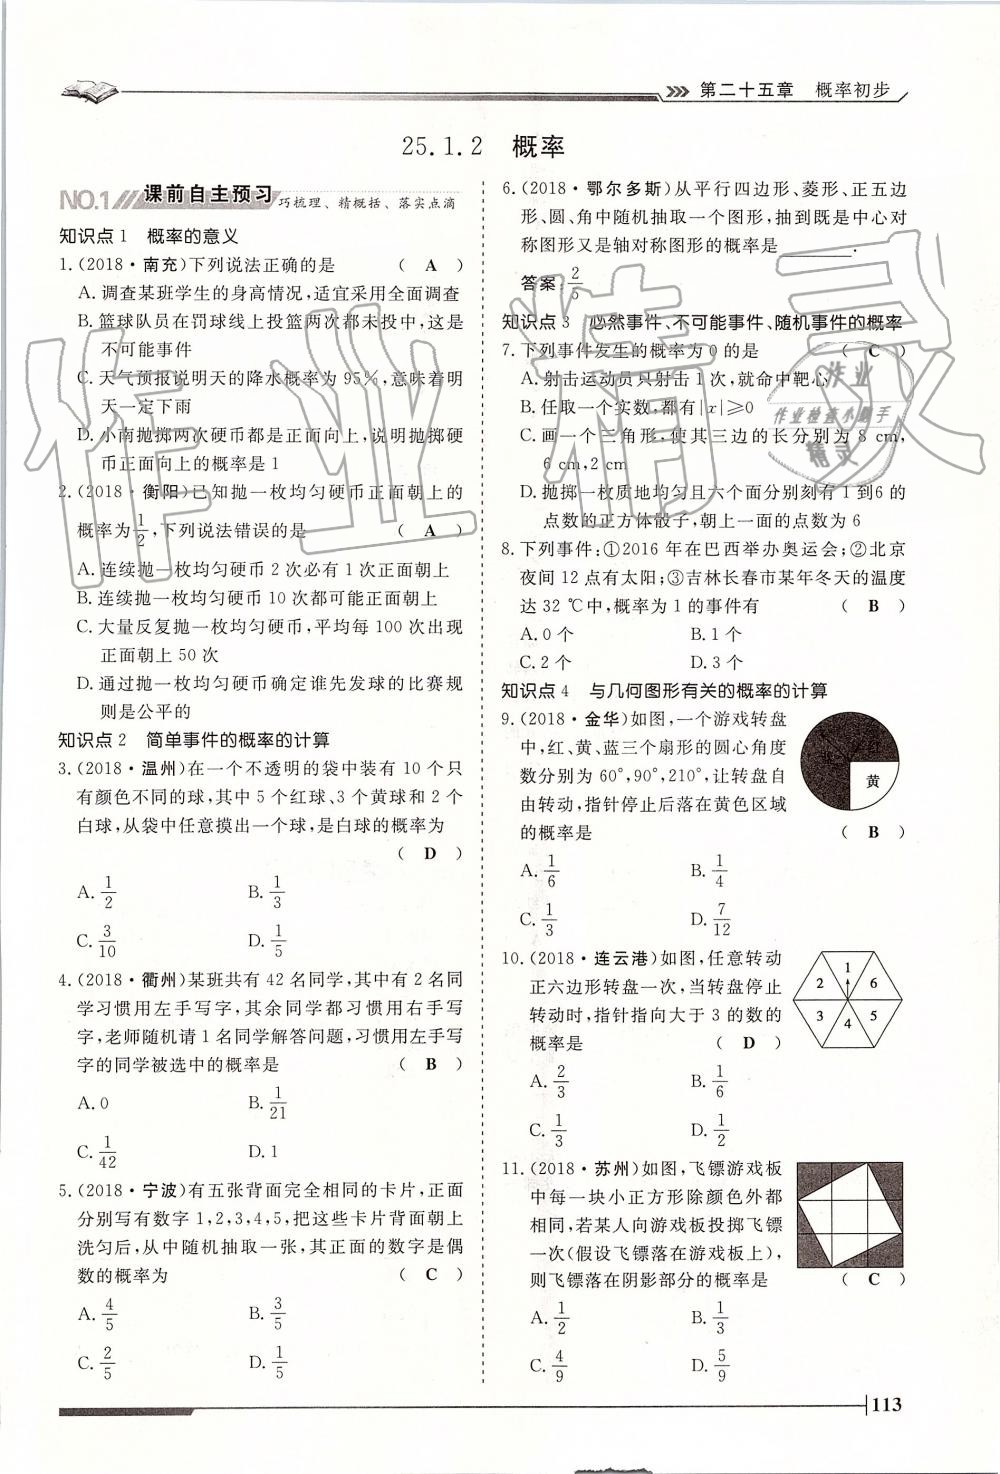 第二十五章 概率初步
25.1.2 概率
NO.1 课前自主预习 巧梳理、精概括、落实点滴
知识点1 概率的意义
1.(2018·南充)下列说法正确的是 ( A )
A.调查某班学生的身高情况,适宜采用全面调查
B.篮球队员在罚球线上投篮两次都未投中,这是
不可能事件
C.天气预报说明天的降水概率为95%,意味着明
天一定下雨
D.小南抛掷两次硬币都是正面向上,说明抛掷硬
币正面向上的概率是1
2.(2018·衡阳)已知抛一枚均匀硬币正面朝上的
概率为1/2,下列说法错误的是 ( A )
A.连续抛一枚均匀硬币2次必有1次正面朝上
B.连续抛一枚均匀硬币10次都可能正面朝上
C.大量反复抛一枚均匀硬币,平均每100次出现
正面朝上50次
D.通过抛一枚均匀硬币确定谁先发球的比赛规
则是公平的
知识点2 简单事件的概率的计算
3.(2018·温州)在一个不透明的袋中装有10个只
有颜色不同的球,其中5个红球、3个黄球和2个
白球,从袋中任意摸出一个球,是白球的概率为
( D )
A.1/2 B.1/3
C.3/10 D.1/5
4.(2018·衢州)某班共有42名同学,其中有2名同
学习惯用左手写字,其余同学都习惯用右手写
字,老师随机请1名同学解答问题,习惯用左手写
字的同学被选中的概率是 ( B )
A.0 B.1/21
C.1/42 D.1
5.(2018·宁波)有五张背面完全相同的卡片,正面
分别写有数字1,2,3,4,5,把这些卡片背面朝上
洗匀后,从中随机抽取一张,其正面的数字是偶
数的概率为 ( C )
A.4/5 B.3/5
C.2/5 D.1/5
6.(2018·鄂尔多斯)从平行四边形、菱形、正五边
形、圆、角中随机抽取一个图形,抽到既是中心对
称图形又是轴对称图形的概率是________.
答案:2/5
知识点3 必然事件、不可能事件、随机事件的概率
7.下列事件发生的概率为0的是 ( C )
A.射击运动员只射击1次,就命中靶心
B.任取一个实数,都有|x|≥0
C.画一个三角形,使其三边的长分别为8 cm,
6 cm,2 cm
D.抛掷一枚质地均匀且六个面分别刻有1到6的
点数的正方体骰子,朝上一面的点数为6
8.下列事件:①2016年在巴西举办奥运会;②北京
夜间12点有太阳;③吉林长春市某年冬天的温度
达32 ℃中,概率为1的事件有 ( B )
A.0个 B.1个
C.2个 D.3个
知识点4 与几何图形有关的概率的计算
9.(2018·金华)如图,一个游戏转盘
中,红、黄、蓝三个扇形的圆心角度
数分别为60°,90°,210°,让转盘自
由转动,指针停止后落在黄色区域
的概率是 ( B )
红
黄
A.1/6 B.1/4
C.1/3 D.7/12
10.(2018·连云港)如图,任意转动
正六边形转盘一次,当转盘停止
转动时,指针指向大于3的数的
概率是 ( D )
1
2 6
3 5
4
A.2/3 B.1/6
C.1/3 D.1/2
11.(2018·苏州)如图,飞镖游戏板
中每一块小正方形除颜色外都
相同,若某人向游戏板投掷飞镖
一次(假设飞镖落在游戏板上),
则飞镖落在阴影部分的概率是 ( C )
A.1/2 B.1/3
C.4/9 D.5/9
113
作业精灵
作业
作业检查小助手
精灵